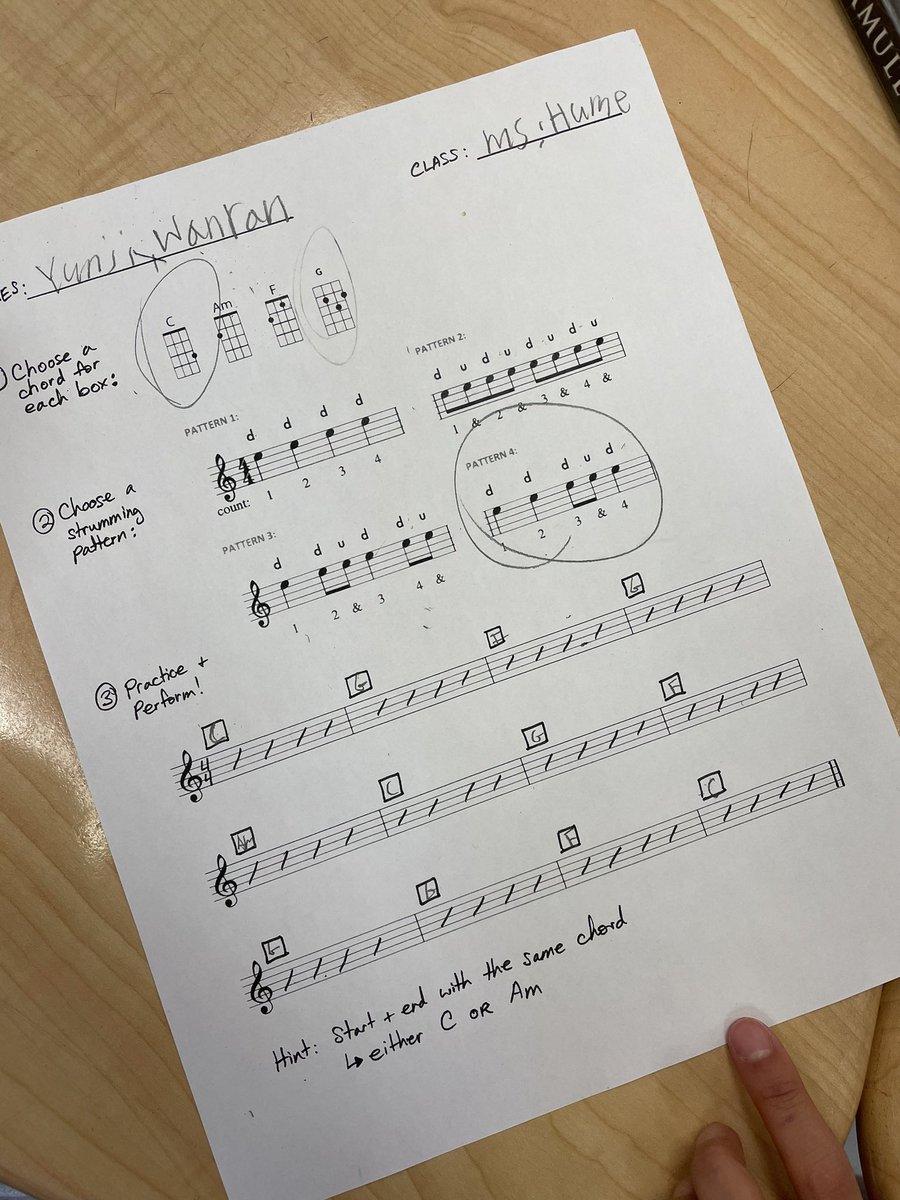 CLASS: Ms. Hume
ES: Yunji, Wanran
C Am F G
Choose a
chord for
each box:
PATTERN 1:
d d d d
4
4
count: 1 2 3 4
PATTERN 2:
d u d u d u d u
1 & 2 & 3 & 4 &
② Choose a
strumming
pattern:
PATTERN 3:
d d u d d u
1 2 & 3 4 &
PATTERN 4:
d d d u d
1 2 3 & 4
③ Practice +
Perform!
C G F G
4
4
Am C G F
G G F C
Hint: Start + end with the same chord
↳ either C OR Am
AMULE